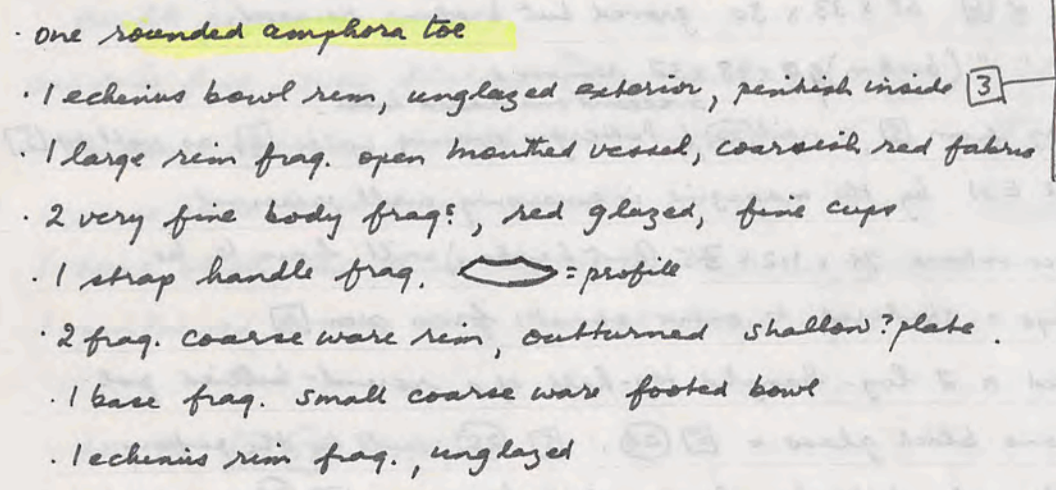 · one rounded amphora toe
· 1 echinus bowl rim, unglazed exterior, pinkish inside 3
· 1 large rim frag. open mouthed vessel, coarsish red fabric
· 2 very fine body frags, red glazed, fine cups
· 1 strap handle frag. = profile
· 2 frag. coarse ware rim, outturned shallow? plate.
· 1 base frag. small coarse ware footed bowl
· 1 echinus rim frag., unglazed